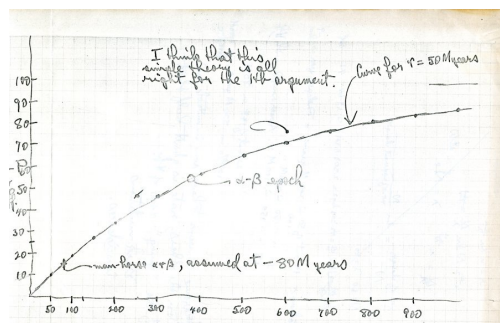 I think that this
simple theory is all
right for the Hb argument.
Curve for τ = 50 M years
100
90
80
70
60
α-β epoch
50
40
30
20
man-horse α+β, assumed at ~80 M years
10
50 100 200 300 400 500 600 700 800 900